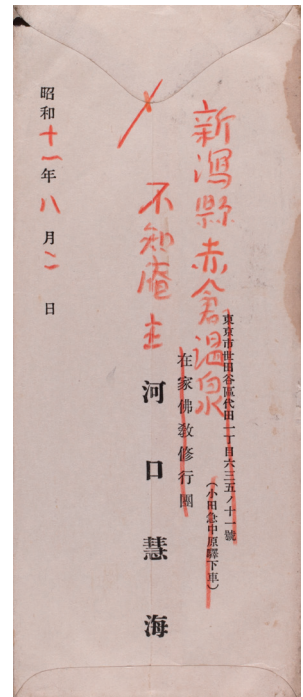 新潟縣赤倉温泉
東京市世田谷區代田二丁目六三五ノ十一號
(小田急中原驛下車)
在家佛敎修行團
不知庵主
河口慧海
昭和十一年八月二日